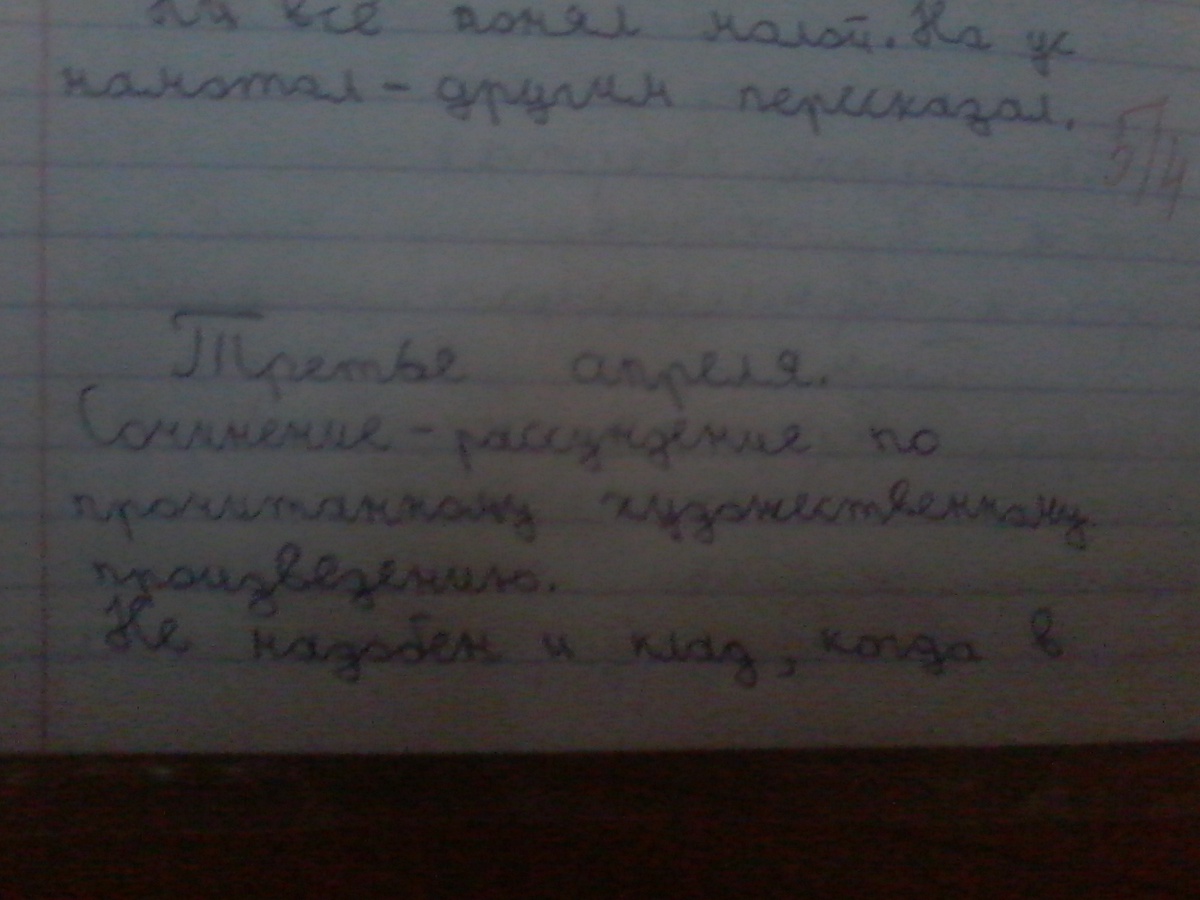 всё понял малой. На ус
намотал – другим пересказал.
5/4
Третье апреля.
Сочинение – рассуждение по
прочитанному художественному
произведению.
Не надобен и клад, когда в